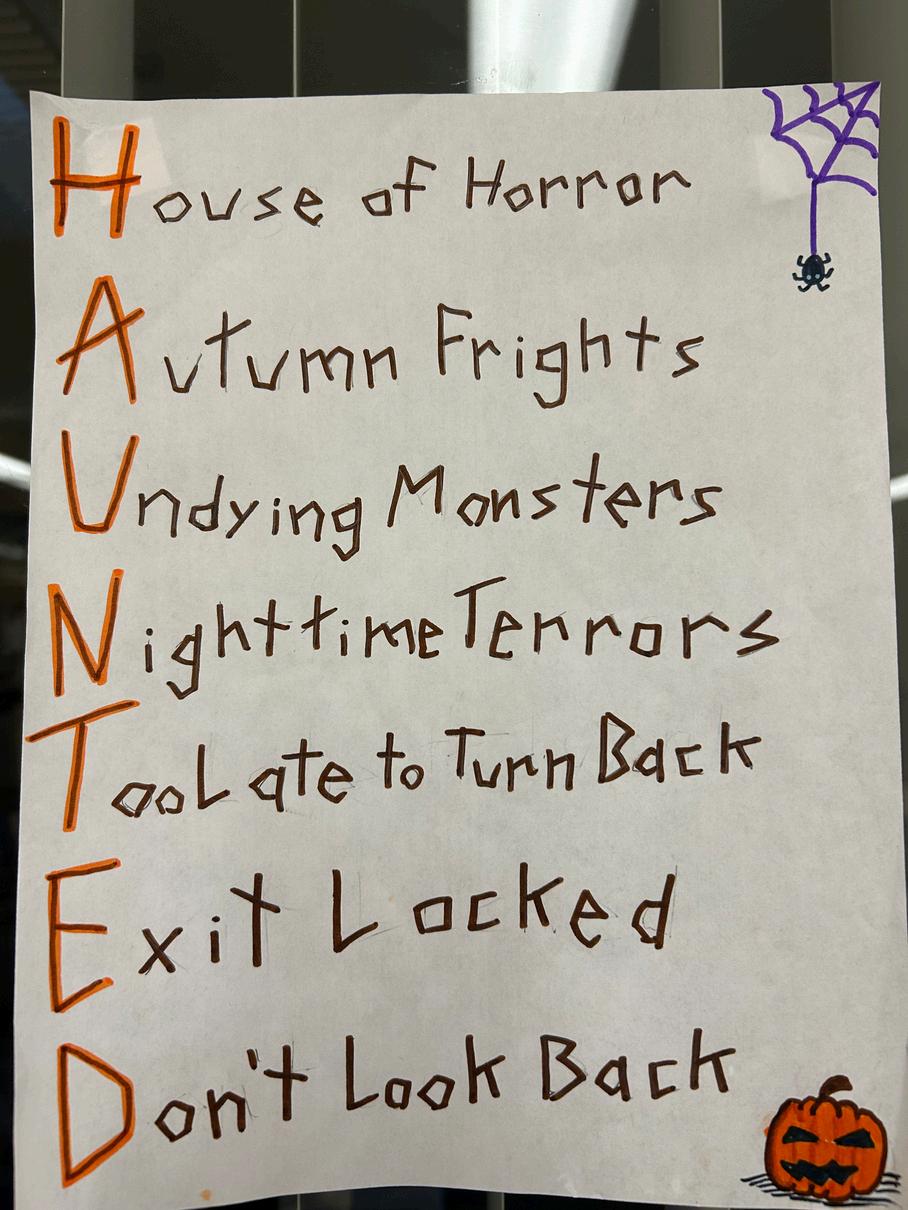 House of Horror
Autumn Frights
Undying Monsters
Nighttime Terrors
Too Late to Turn Back
Exit Locked
Don't Look Back